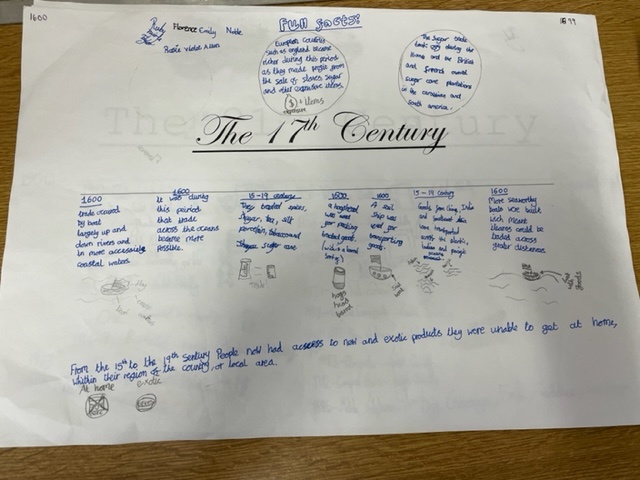 1600
1699
Florence Emily Noble
Rosie Violet Alba
Fun facts!
European Country
such as england became
richer during this period
as they made profit from
the sale of slaves, sugar
and other expensive items.
$ + items
expensive
The sugar trade
took off during the
and the British
and french owned
sugar cane plantations
in the carribean and
South america.
The 17th Century
1600
trade occured
by boat
largely up and
down rivers and
in more accessible
coastal waters.
1600
it was during
this period
that trade
across the oceans
became more
possible.
15-19 century
They traded spices,
Sugar, tea, silk
porcelain, tobacco and
sugar cane
1600
a hogshead
was used
for packing
traded goods.
(which is a barrel
hogs
head
barrel
1600
A sail
ship was
used for
transporting
goods.
15-19 Century
Goods from China, India
and
were transported
across the atlantic,
indian and pacific
oceans
1600
More seaworthy
boats were built
wich meant
could be
traded across
greater distances.
From the 15th to the 19th sentury People now had access to new and exotic products they were unable to get at home,
within their region of the country, or local area.
At home
exotic